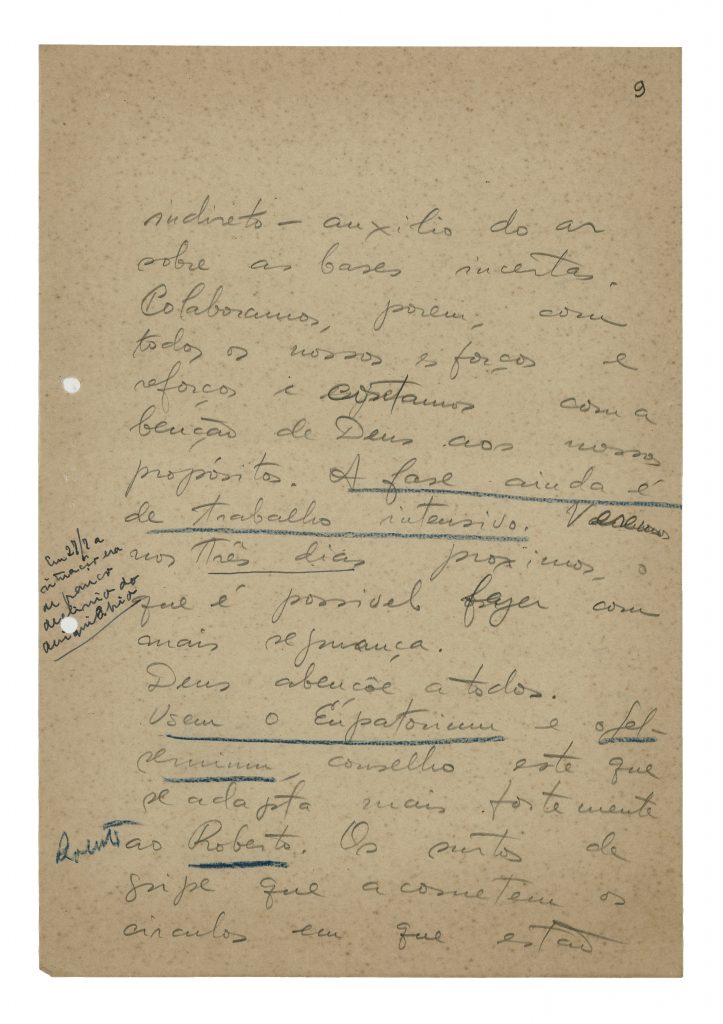 9
indireto — auxilio do ar
sobre as bases incertas.
Colaboramos, porem, com
todos os nossos esforços e
reforços e com a
benção de Deus aos nossos
propósitos. A fase ainda é
de trabalho intensivo. Veremos
nos três dias proximos, o
que é possivel fazer com
mais segurança.
Deus abençõe a todos.
Usem o Eupatorium e o Gel-
seminum, conselho este que
se adapta mais fortemente
ao Roberto. Os surtos de
gripe que acometem os
circulos em que estão
Em a
situação era